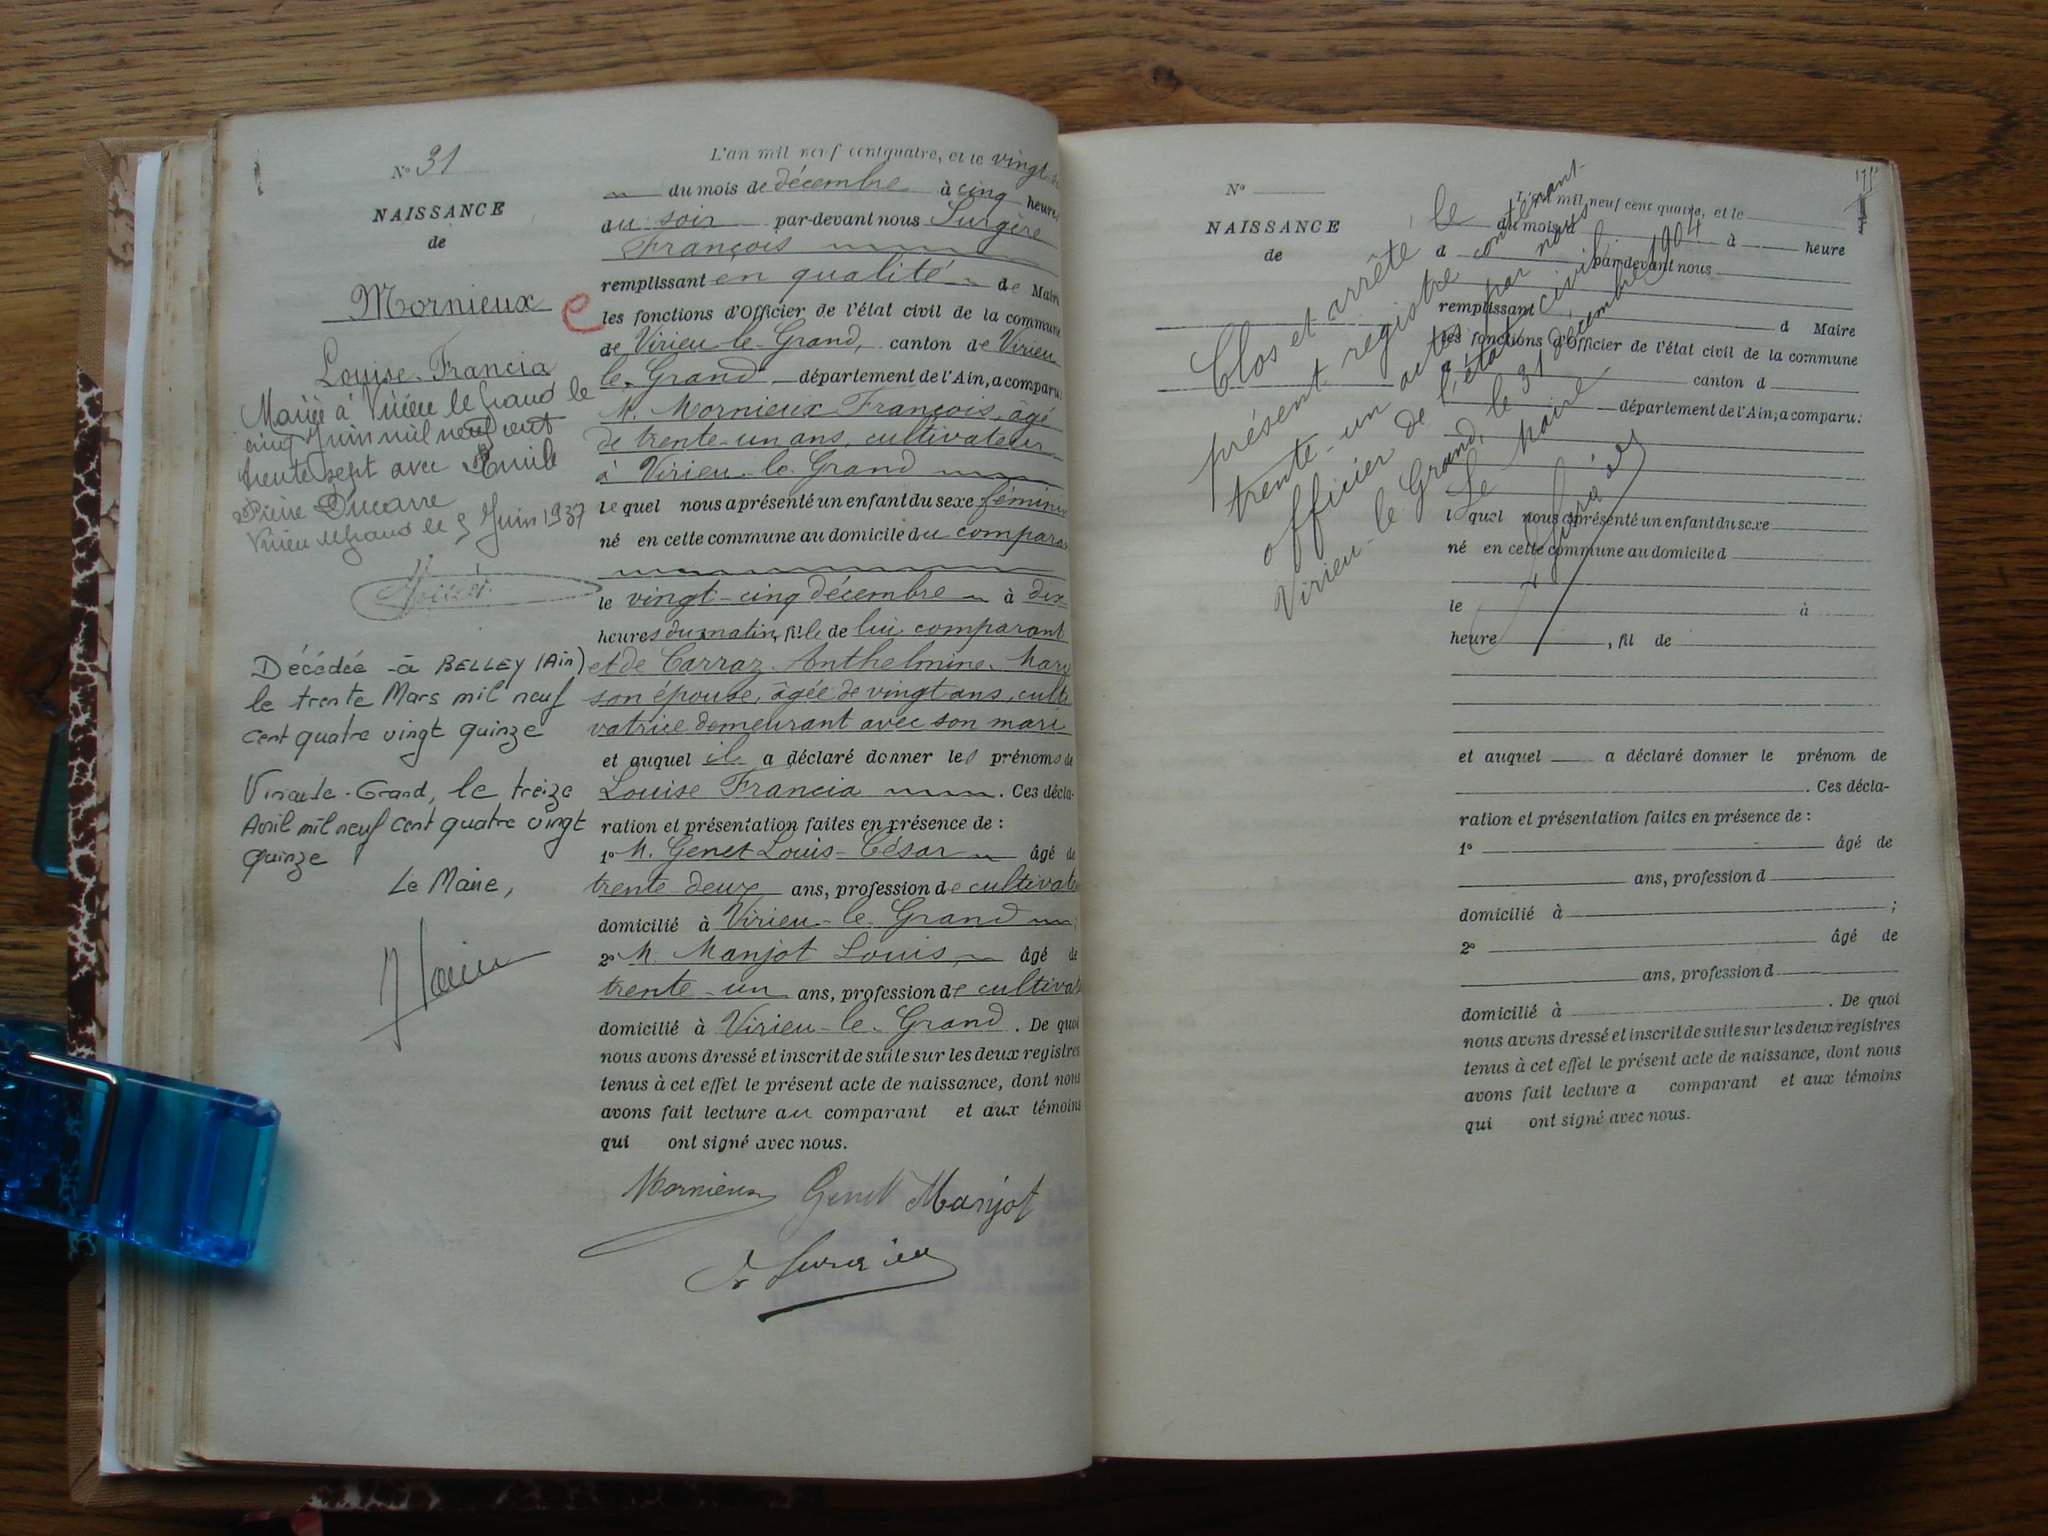 N° 31
NAISSANCE
de
Mornieux
Louise Francia
Mariée à Virieu le Grand le
cinq Juin mil neuf cent
trente sept avec Emile
Pierre Ducarre
Virieu le Grand le 5 Juin 1937
Décédée à BELLEY (Ain)
le trente Mars mil neuf
cent quatre vingt quinze
Virieu-le-Grand, le treize
Avril mil neuf cent quatre vingt
quinze
Le Maire,
L'an mil neuf cent quatre, et le vingt
du mois de décembre à cinq heures
du soir par-devant nous Surgère
François
remplissant en qualité de Maire
les fonctions d'Officier de l'état civil de la commune
de Virieu-le-Grand, canton de Virieu
le-Grand département de l'Ain, a comparu:
M. Mornieux François, âgé
de trente-un ans, cultivateur
à Virieu-le-Grand
le quel nous a présenté un enfant du sexe féminin
né en cette commune au domicile du compara
le vingt-cinq décembre à dix
heures du matin, fille de lui comparant
et de Carraz Anthelmine Mari
son épouse, âgée de vingt ans, culti
vatrice demeurant avec son mari
et auquel il a déclaré donner les prénoms de
Louise Francia . Ces décla-
ration et présentation faites en présence de :
1° M. Genet Louis-César âgé de
trente-deux ans, profession de cultivat
domicilié à Virieu-le-Grand ;
2° M. Manjot Louis, âgé de
trente-un ans, profession de cultivat
domicilié à Virieu-le-Grand . De quoi
nous avons dressé et inscrit de suite sur les deux registres
tenus à cet effet le présent acte de naissance, dont nous
avons fait lecture au comparant et aux témoins
qui ont signé avec nous.
Mornieux Genet Manjot
N°
NAISSANCE
de
Clos et arrêté le
présent registre contenant
trente-un actes par nous
officier de l'état civil
Virieu-le-Grand, le 31 décembre 1904
Le Maire
L'an mil neuf cent quatre, et le
du mois d à heure
d par-devant nous
remplissant d Maire
les fonctions d'Officier de l'état civil de la commune
canton d
département de l'Ain, a comparu:
l quel nous a présenté un enfant du sexe
né en cette commune au domicile d
le à
heure , fil de
et auquel a déclaré donner le prénom de
. Ces décla-
ration et présentation faites en présence de :
1° âgé de
ans, profession d
domicilié à ;
2° âgé de
ans, profession d
domicilié à . De quoi
nous avons dressé et inscrit de suite sur les deux registres
tenus à cet effet le présent acte de naissance, dont nous
avons fait lecture a comparant et aux témoins
qui ont signé avec nous.